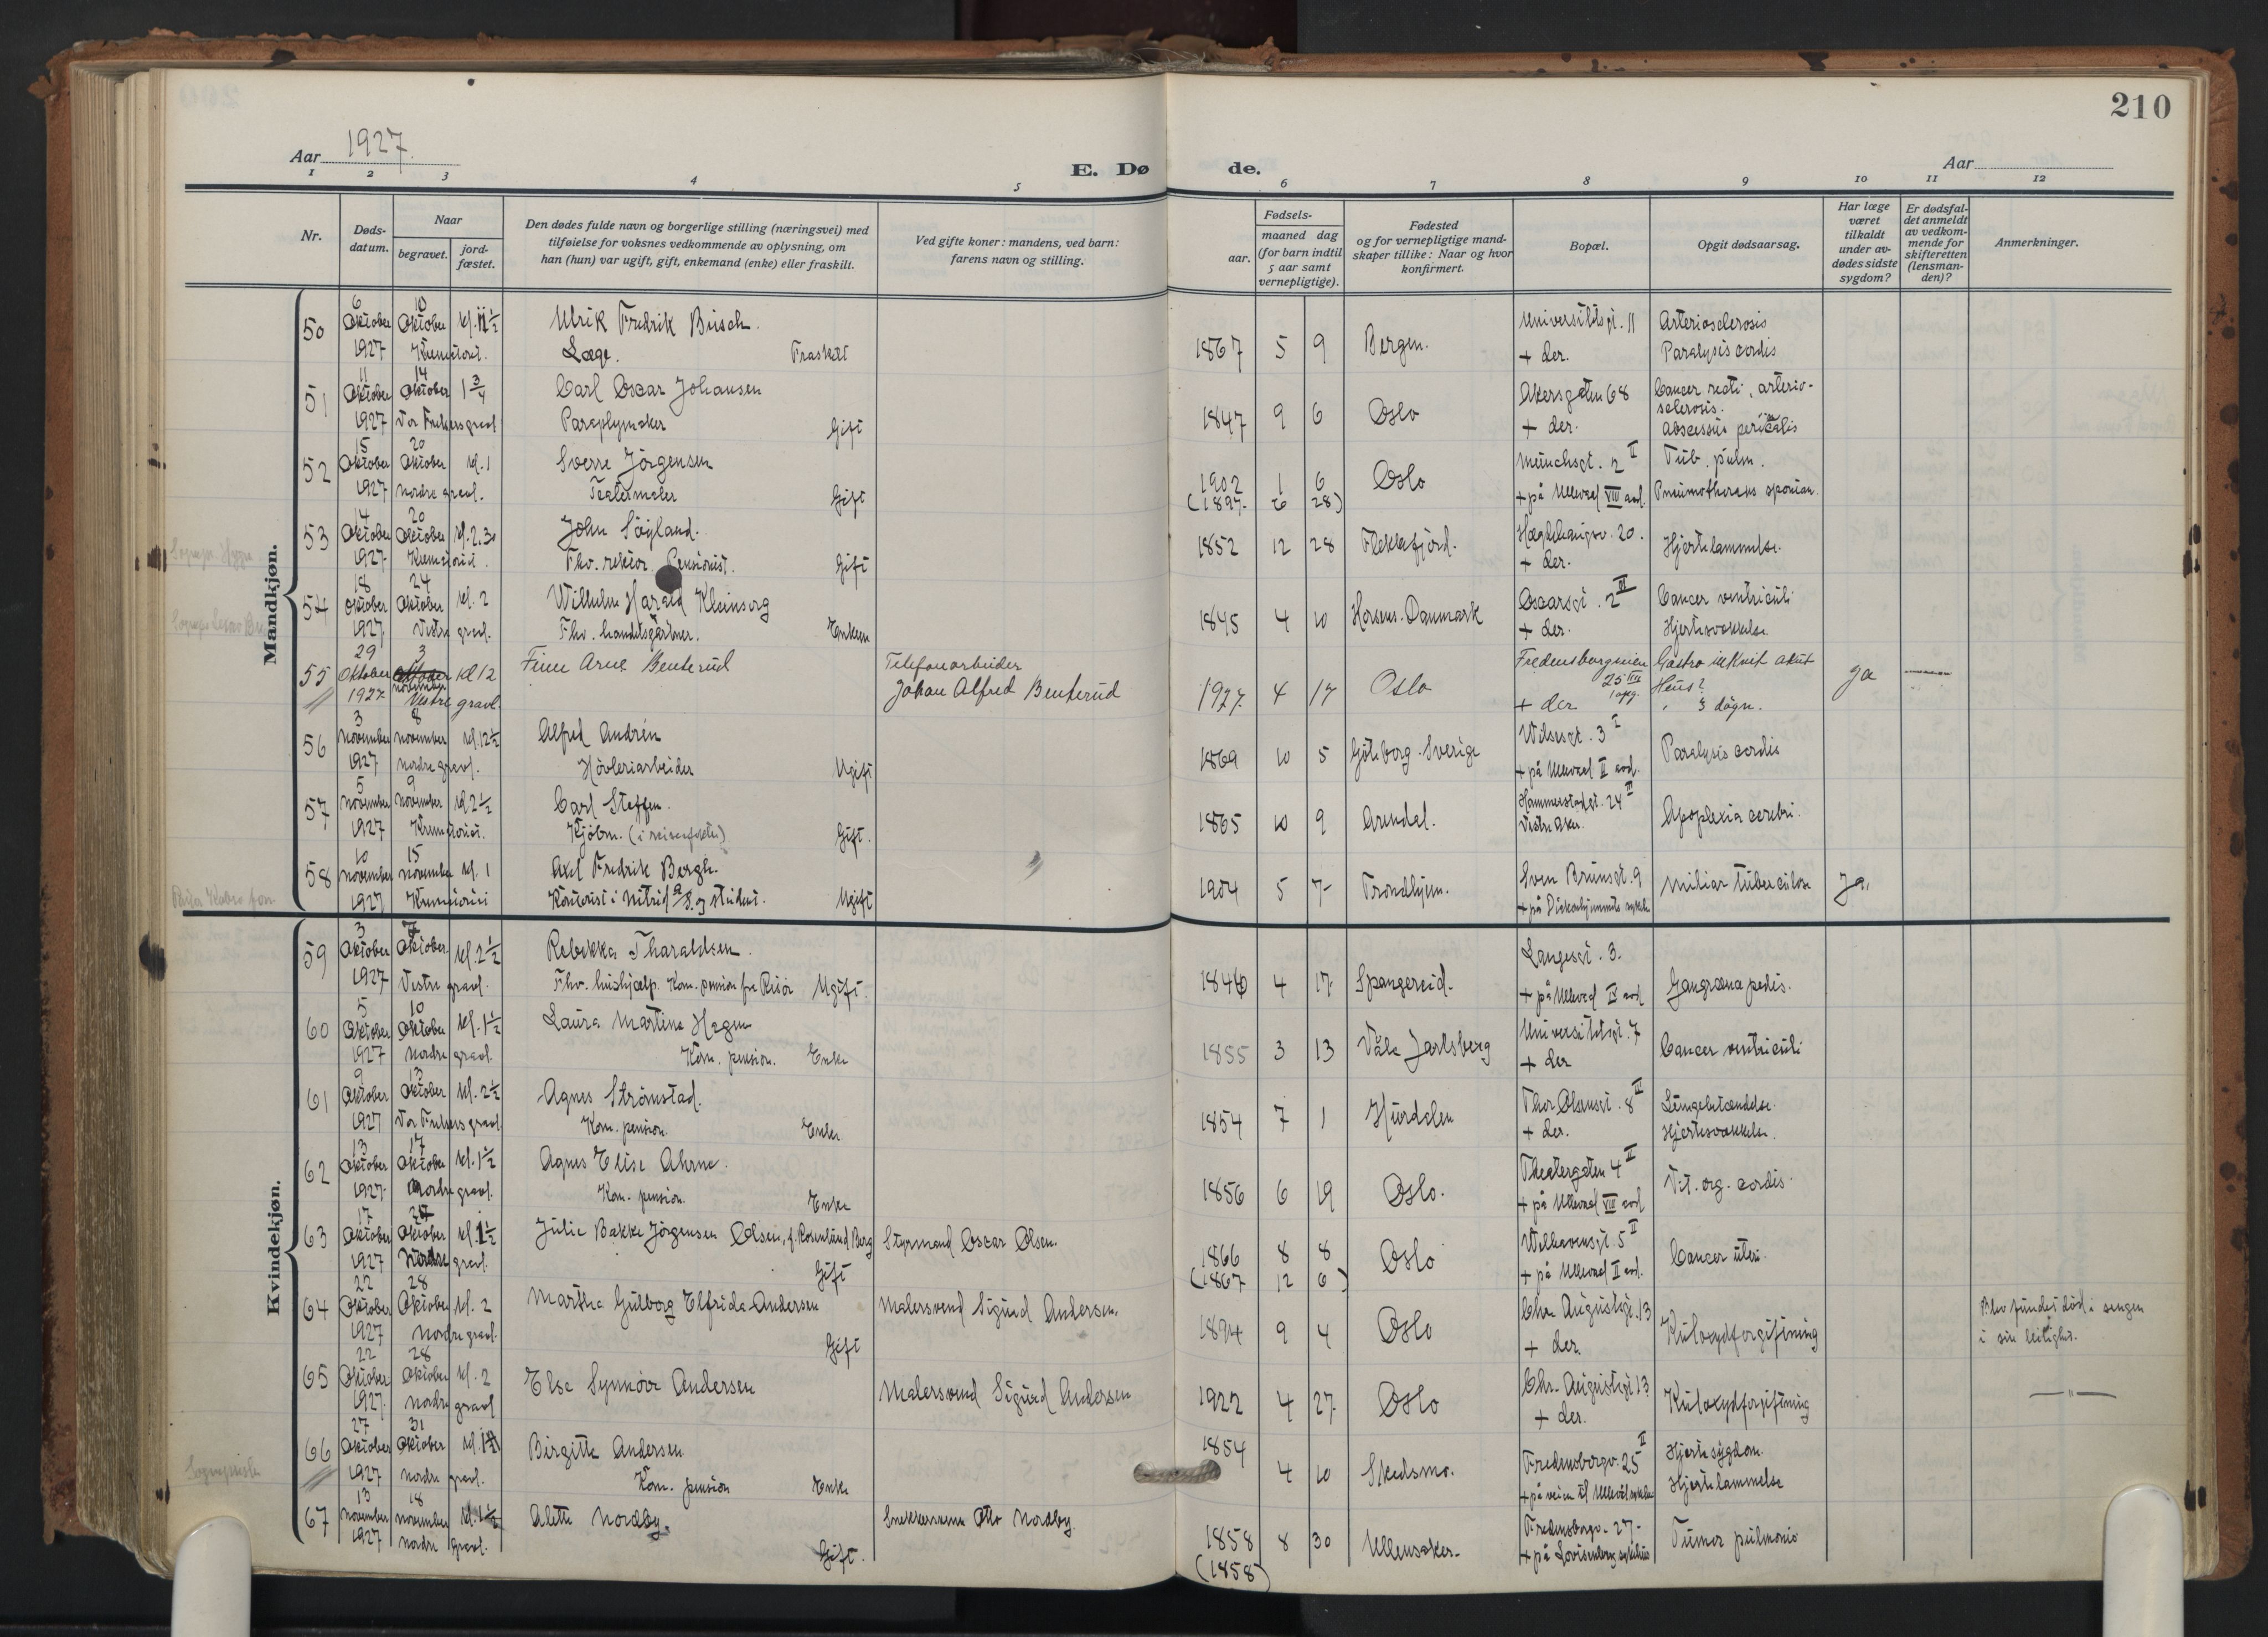 210
Aar 1927.
E. Dø
de.
Aar
1 2 3 4 5 6 7 8 9 10 11 12
Nr.
Døds-
datum.
Naar
begravet.
jord-
fæstet.
Den dødes fulde navn og borgerlige stilling (næringsvei) med
tilføielse for voksnes vedkommende av oplysning, om
han (hun) var ugift, gift, enkemand (enke) eller fraskilt.
Ved gifte koner: mandens, ved barn:
farens navn og stilling.
Fødsels-
aar.
maaned dag
(for barn indtil
5 aar samt
vernepligtige).
Fødested
og for vernepligtige mand-
skaper tillike: Naar og hvor
konfirmert.
Bopæl.
Opgit dødsaarsag.
Har læge
været
tilkaldt
under av-
dødes sidste
sygdom?
Er dødsfal-
det anmeldt
av vedkom-
mende for
skifteretten
(lensman-
den)?
Anmerkninger.
Mandkjøn.
6 10
50 Oktober Oktober kl. 11½ Ulrik Fredrik Busch. Universitetsgt. 11 Arteriosclerosis
1927 Krematoriet. Læge. Fraskilt 1867 5 9 Bergen. + der. Paralysis cordis
11 14
51 Oktober Oktober 1¾ Carl Oscar Johansen Akersgaten 68 Cancer recti, arterio-
sclerosis.
1927 Vor Frelsers gravl Paraplymaker Gift 1847 9 6 Oslo + der. Abscessus
15 20
52 Oktober Oktober kl. 1 Sverre Jörgensen Munchsgt. 2 II Tub. pulm.
1927 Nordre gravl. Teatermaler Gift 1902 1 6 Oslo + på Ullevaal VIII avd. Pneumothoraks spontan.
(1897 6 28)
14 20
53 Oktober Oktober kl. 2.30 John Söyland. 20.
1927 Krematoriet. Fhv. rektor. Pensionist. Gift 1852 12 28 Flekkefjord. + der. Hjertelammelse.
18 24
54 Oktober Oktober kl. 2 Wilhelm Harald Kleinsorg Oscarsgt. 2 III Cancer ventriculi
1927 Vestre gravl. Fhv. handelsgartner. Enkem 1845 4 10 Horsens. Danmark + der. Hjertesvækkelse.
29 3
55 Oktober november kl 12 Finn Arne Benterud Telefonarbeider Fredensborgveien Gastro intkrit akut
1927 Vestre gravl. Johan Alfred Benterud 1927. 4 17 Oslo 25 VIII opg. Heus? ja
+ der 3 dögn.
3 8
56 November november kl. 12½ Alfred Andrén Wilsesgt. 3 I
1927 nordre gravl. Hövleriarbeider Ugift 1869 10 5 Göteborg. Sverige + på Ullevaal II avd. Paralysis cordis
5 9
57 November November kl 2½ Carl Steffen. Hammerstadgt. 24 III
1927 Krematoriet. Kjöbm. (i reiseeffekter) Gift. 1865 10 9 Arendal. Vestre Aker. Apoplexia cerebri.
10 15
58 November november kl. 1 Axel Fredrik Bergh. Sven Brunsgt. 9
1927 Krematoriet Kontorist i Nitrid A/S. og student. Ugift 1904 5 7 Trondhjem. + på Diakonhjemmets sykeh Miliar tuberculose Ja.
Kvindekjøn.
3 7
59 Oktober Oktober. kl. 2½ Rebekka Tharaldsen. Langesgt. 3.
1927 Vestre gravl. Fhv. hushjælp. Kom. pension fra Risör Ugift. 1846 4 17 Spangereid. + på Ullevaal IV avd Gangræna pedis.
5 10
60 Oktober Oktober kl. 1½ Laura Martine Hagen Universitetsgt. 7
1927 Nordre gravl. Kom. pension. Enke 1855 3 13 Våle Jarlsberg + der Cancer ventriculi
9 13
61 Oktober Oktober kl. 2½ Agnes Strömstad. Thor Olsensgt. 8 III Lungebetændelse.
1927 Vor Frelsers gravl Kom. pension. Enke. 1854 7 1 Hurdalen + der. Hjertesvækkelse.
13 17
62 Oktober Oktober kl. 1½ Agnes Elise Ahrne. Theatergaten 4 II
1927. Nordre gravl. Kom. pension. Enke 1856 6 19 Oslo. + på Ullevaal VIII avd Vit. org. cordis.
17 21
63 Oktober Oktober kl. 1½ Julie Bakke Jörgensen Olsen, f. Rosenlund Berg Styrmand Oscar Olsen. Welhavensgt. 5 II
1927 Nordre gravl. Gift 1866 8 8 Oslo + på Ullevaal II avd. Cancer uteri.
(1867 12 6)
22 28
64 Oktober Oktober kl. 2 Martha Gulborg Elfrida Andersen Malersvend Sigurd Andersen. Chr. Augustsgt. 13 Blev fundet död i sengen
1927 Nordre gravl. Gift 1894 9 4 Oslo + der. Kuloxydforgiftning i sin leilighet.
22 28
65 Oktober Oktober kl. 2 Else Synnöve Andersen Malersvend Sigurd Andersen Chr. Augustsgt 13
1927. Nordre gravl 1922 4 27 Oslo + der. Kuloxydforgiftning — " —
27 31
66 Oktober Oktober kl. Birgitte Andersen 1854 Fredensborgv. 25 II Hjertesygdom.
1927 Nordre gravl. Kom. pension Enke 4 10 Skedsmo. + på veien til Ullevål sykehus Hjertelammelse
13 18
67 November november kl. 1½ Alette Nordby. Snekkersvend Otto Nordby. Fredensborgv. 27
1927 Nordre gravl. Gift. 1858 8 30 Ullensaker. + på Lovisenberg sykehus Tumor pulmonis
(1858)